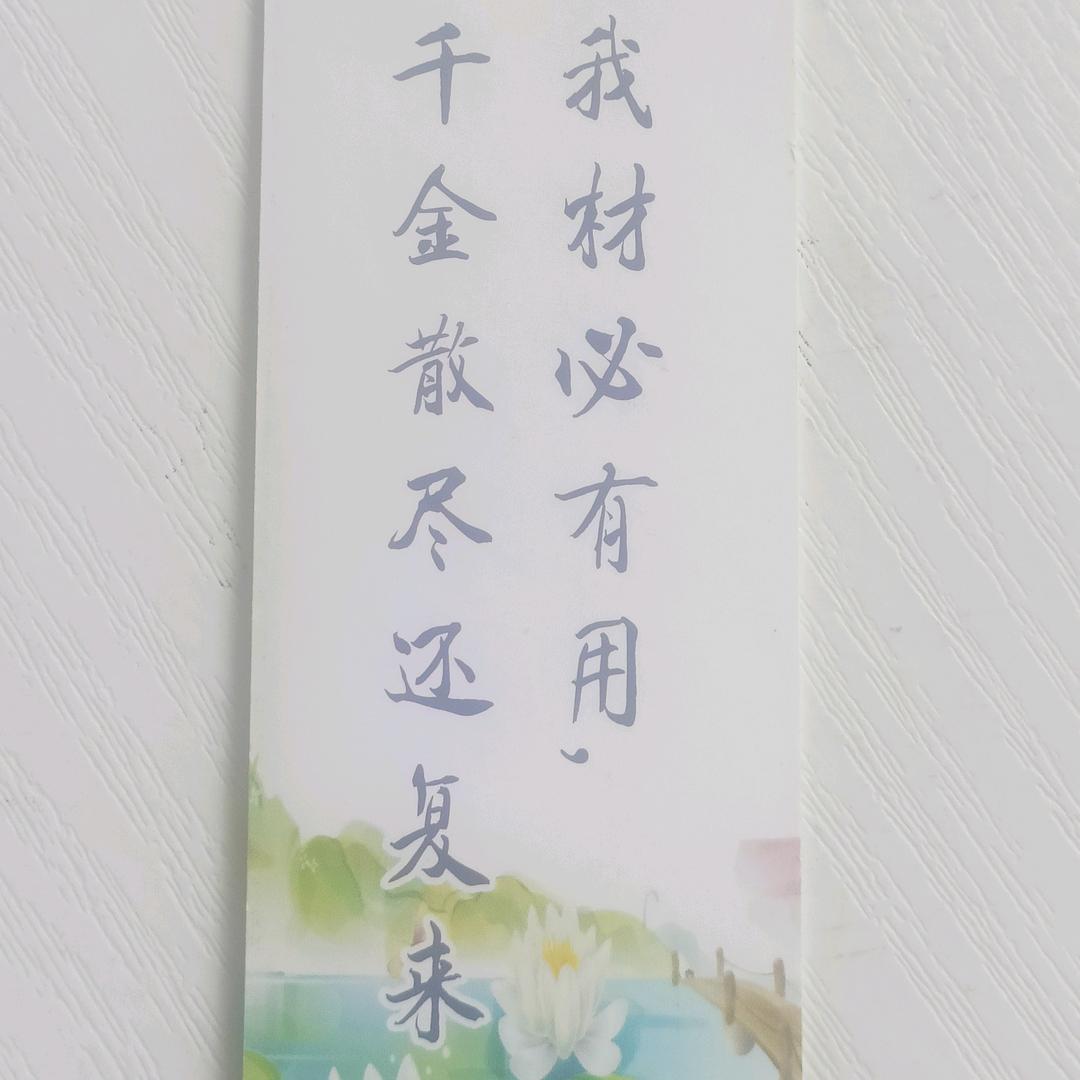 我材必有用，
千金散尽还复来